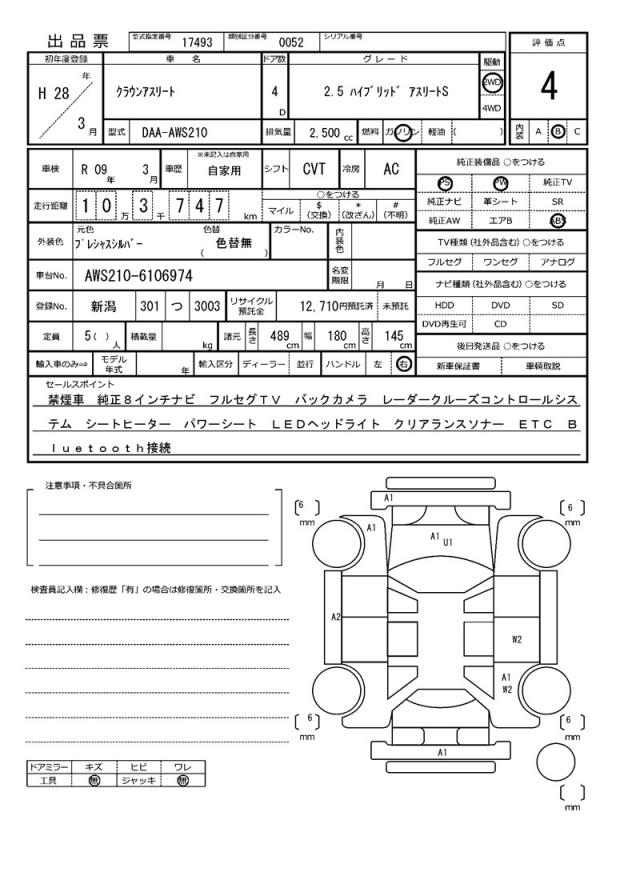 出品票 型式指定番号 17493 類別区分番号 0052 シリアル番号
評価点
4
内装 A B C
初年度登録 車名 ドア数 グレード 駆動
H 28 年 3 月 クラウンアスリート 4 D 2.5 ハイブリッド アスリートS 2WD 4WD
型式 DAA-AWS210 排気量 2,500 cc 燃料 ガソリン 軽油 ( )
車検 R 09 年 3 月 車歴 ※未記入は自家用 自家用 シフト CVT 冷房 AC
走行距離 1 0 万 3 千 7 4 7 km ○をつける マイル $ (交換) * (改ざん) # (不明)
外装色 元色 プレシャスシルバー 色替 ( 色替無 ) カラーNo. 内装色
車台No. AWS210-6106974 名変期限 月 日
登録No. 新潟 301 つ 3003 リサイクル預託金 12,710円預託済 未預託
定員 5( ) 人 積載量 kg 諸元 長さ 489 cm 幅 180 cm 高さ 145 cm
輸入車のみ⇒ モデル年式 年 輸入区分 ディーラー 並行 ハンドル 左 右
純正装備品 ○をつける
PS PW 純正TV
純正ナビ 革シート SR
純正AW エアB ABS
TV種類 (社外品含む) ○をつける
フルセグ ワンセグ アナログ
ナビ種類 (社外品含む) ○をつける
HDD DVD SD
DVD再生可 CD
後日発送品 ○をつける
新車保証書 車輌取説
セールスポイント
禁煙車 純正8インチナビ フルセグTV バックカメラ レーダークルーズコントロールシス
テム シートヒーター パワーシート LEDヘッドライト クリアランスソナー ETC B
luetooth接続
注意事項・不具合箇所
検査員記入欄：修復歴「有」の場合は修復箇所・交換箇所を記入
ドアミラー キズ ヒビ ワレ
工具 無 ジャッキ 無
A1
6 mm
6 mm
A1
A1
U1
A2
W2
A1
W2
6 mm
6 mm
A1
mm